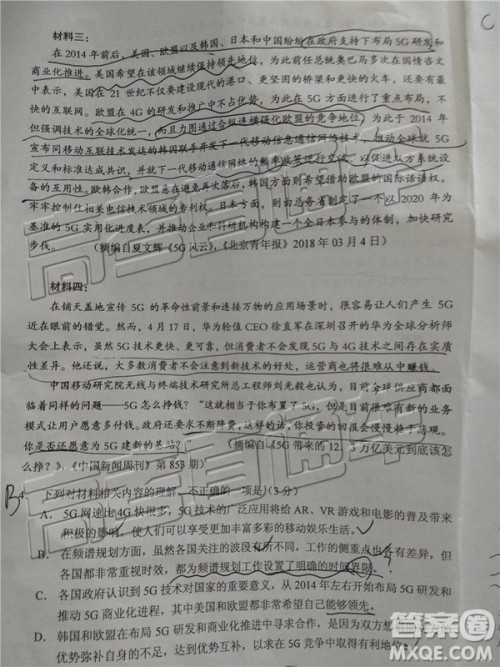 材料三：
在2014年前后，美国、欧盟以及韩国、日本和中国纷纷在政府支持下布局5G研发和
商业化推进。美国希望在该领域继续保持领先地位，为此前任总统奥巴马多次在国情咨文
中表示，美国在21世纪不仅要建设现代的港口、更坚固的桥梁和更快的火车，还要有最
快的互联网。欧盟在4G的研发和推广中不占优势，为此在5G方面进行了重点布局，不
但强调技术的全球化统一，而且力图通过合纵连横强化欧盟的竞争地位，为此于2014年
宣布同移动互联技术发达的韩国联手开发下一代移动信息通信网络技术，推动全球就5G
定义和标准达成共识，并就下一代移动通信网络的频率政策进行交议，以促进双方系统设
备的互用性。欧韩合作，欧盟意在避免再次落后，韩国方面则希望借助欧盟的国际话语权，
牢牢控制住相关电信技术领域的专利权。日本方面，则由总务省制定了一个以2020年为
基准的5G实用化进度表，并推动企业和科研机构构建一个全日本参与的体制，加快研究
步伐。（摘编自夏文辉《5G风云》，《北京青年报》2018年03月4日）
材料四：
在铺天盖地宣传5G的革命性前景和连接万物的应用场景时，很容易让人们产生5G
近在眼前的错觉。然而，4月17日，华为轮值CEO徐直军在深圳召开的华为全球分析师
大会上表示，虽然5G技术更快、更可靠，但消费者不会发现5G与4G技术之间存在实质
性差异。他还说，大多数消费者不会注意到新技术的好处，运营商也将很难从中赚钱。
中国移动研究院无线与终端技术研究所总工程师刘光毅也认为，目前全球供应商都面
临着同样的问题——5G怎么挣钱？“这就相当于你布置了5G，但是目前很难有新的业务
模式让用户愿意多付钱。政府还要求不断降费，这样的话，你投资的回报会很慢或者渺茫。
你是否还愿意为5G建新的基站？”（摘编自《5G带来的12.3万亿美元到底该怎
么挣？》，《中国新闻周刊》第853期）
B4．下列对材料相关内容的理解，不正确的一项是（3分）
A．5G网速比4G快很多，5G技术的广泛应用将给AR、VR游戏和电影的普及带来
积极的影响，使人们可以享受更加丰富多彩的移动娱乐生活。
B．在频谱规划方面，虽然各国关注的波段有所不同，工作的侧重点也各有差异，但
各国都非常重视时效，都为频谱规划工作设置了明确的时间界限。
C．各国政府认识到5G技术对国家的重要意义，从2014年左右开始布局5G研发和
推动5G商业化进程，其中美国和欧盟都非常希望自己能够领先。
D．韩国和欧盟在布局5G研发和商业推进中寻求合作，是因为双方想
优势弥补自身的不足，达到优势互补，以求在5G竞争中取得有利地
高考直通车
高考直通车
答案圈